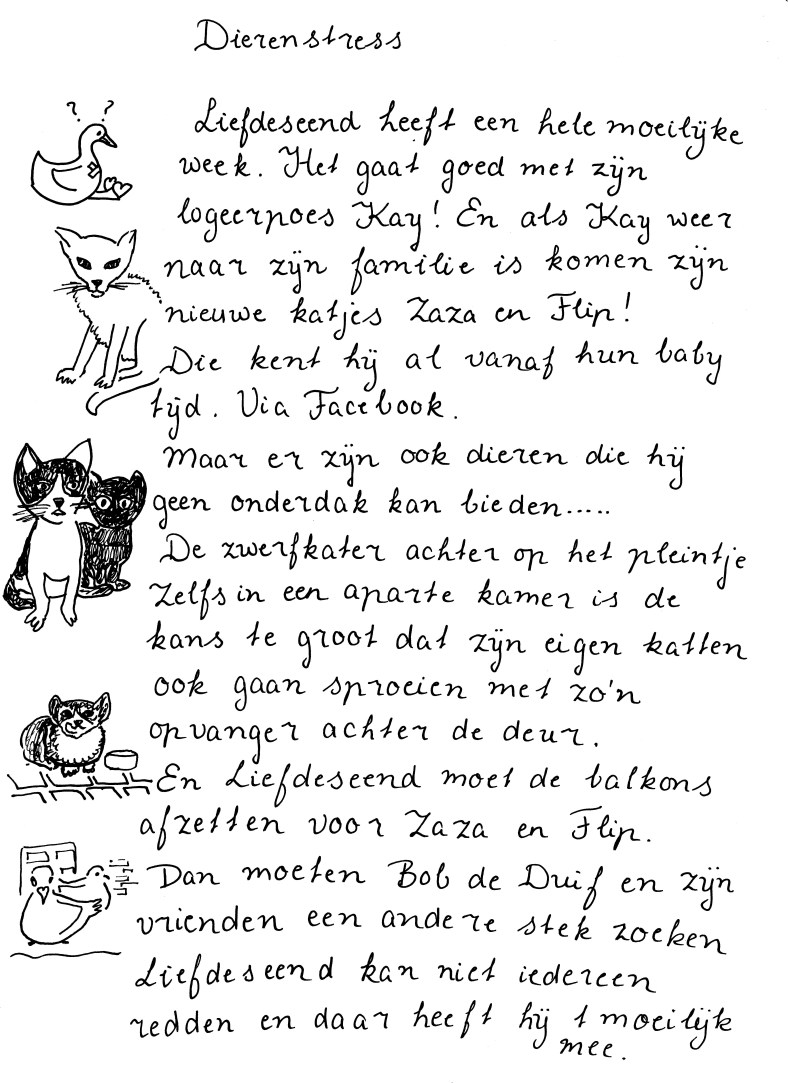 Dierenstress
? ?
Liefdeseend heeft een hele moeilijke
week. Het gaat goed met zijn
logeerpoes Kay! En als Kay weer
naar zijn familie is komen zijn
nieuwe katjes Zaza en Flip!
Die kent hij al vanaf hun baby
tijd. Via Facebook.
Maar er zijn ook dieren die hij
geen onderdak kan bieden.....
De zwerfkater achter op het pleintje
Zelfs in een aparte kamer is de
kans te groot dat zijn eigen katten
ook gaan sproeien met zo'n
opvanger achter de deur.
En Liefdeseend moet de balkons
afzetten voor Zaza en Flip.
Dan moeten Bob de Duif en zijn
vrienden een andere stek zoeken
Liefdeseend kan niet iedereen
redden en daar heeft hij t moeilijk
mee.